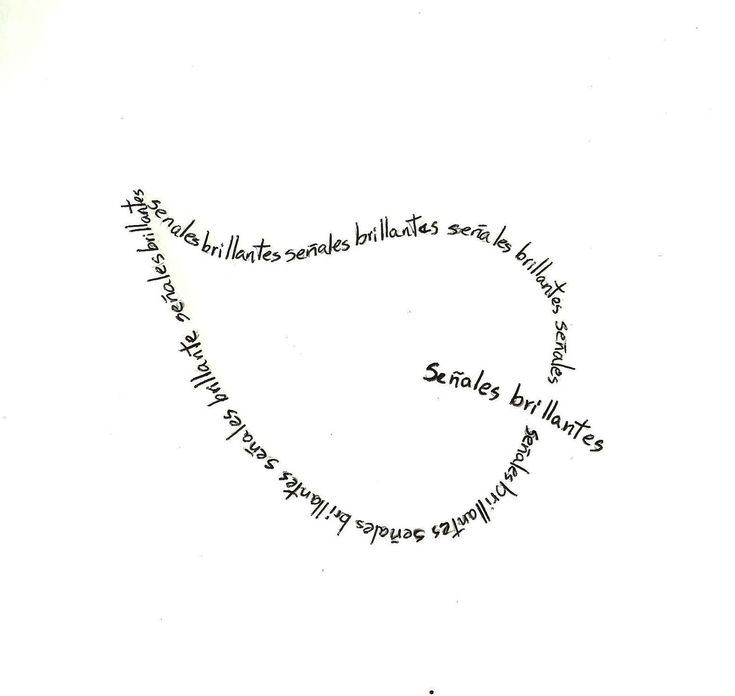 señales brillantes señales brillantes señales brillantes señales
Señales brillantes
señales brillantes señales brillantes señales brillante señales brillantes